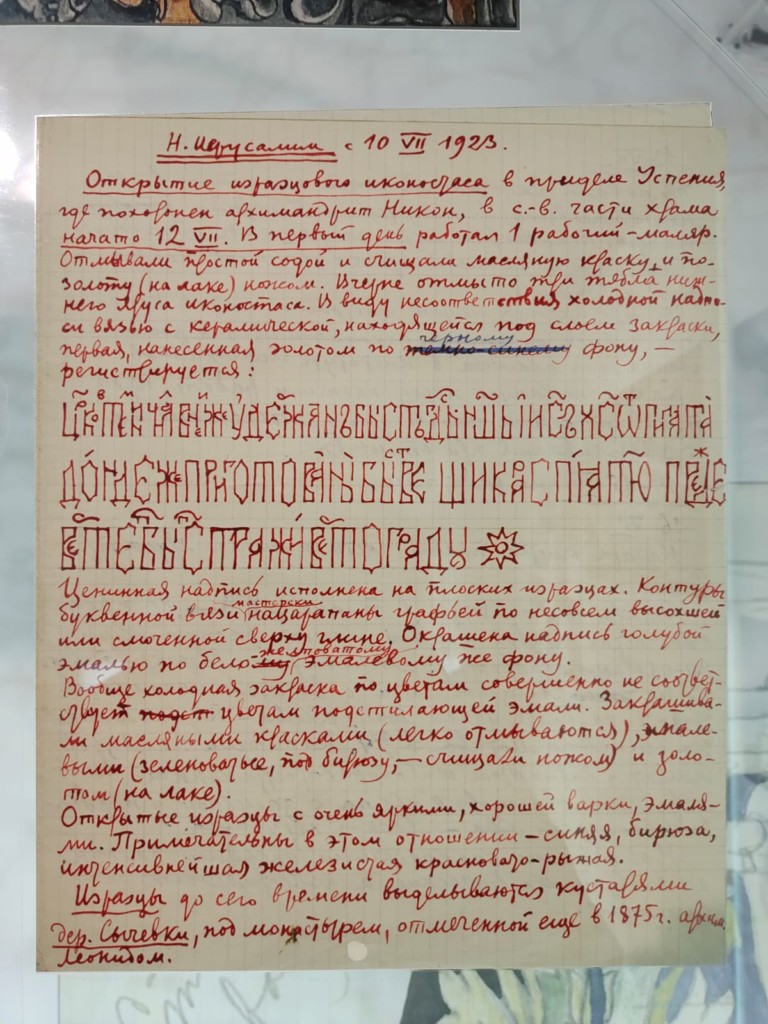 Н. Иерусалим с 10 VII 1923.
Открытие изразцового иконостаса в приделе Успения,
где похоронен архимандрит Никон, в с.-в. части храма
начато 12 VII. В первый день работал 1 рабочий-маляр.
Отмывали простой содой и счищали масляную краску и по-
золоту (на лаке) ножом. Вчерне отмыто три тябла ниж-
него яруса иконостаса. В виду несоответствия холодной надпи-
си вязью с керамической, находящейся под слоем закраски,
первая, нанесенная золотом по черному фону, —
регистрируется:
Ценинная надпись исполнена на плоских изразцах. Контуры
буквенной вязи мастерски нацарапаны графьей по несовсем высохшей
или смоченной сверху глине. Окрашена надпись голубой
эмалью по бело желтоватому эмалевому же фону.
Вообще холодная закраска по цветам совершенно не соответ-
ствует цветам подстилающей эмали. Закрашива-
ли масляными красками (легко отмываются), эмале-
выми (зеленоватые, под бирюзу, — счищали ножом) и золо-
том (на лаке).
Открытые изразцы с очень яркими, хорошей варки, эмаля-
ми. Примечательны в этом отношении – синяя, бирюза,
интенсивнейшая железистая красновато-рыжая.
Изразцы до сего времени выделываются кустарями
дер. Сычевки, под монастырем, отмеченной еще в 1875 г. архим.
Леонидом.